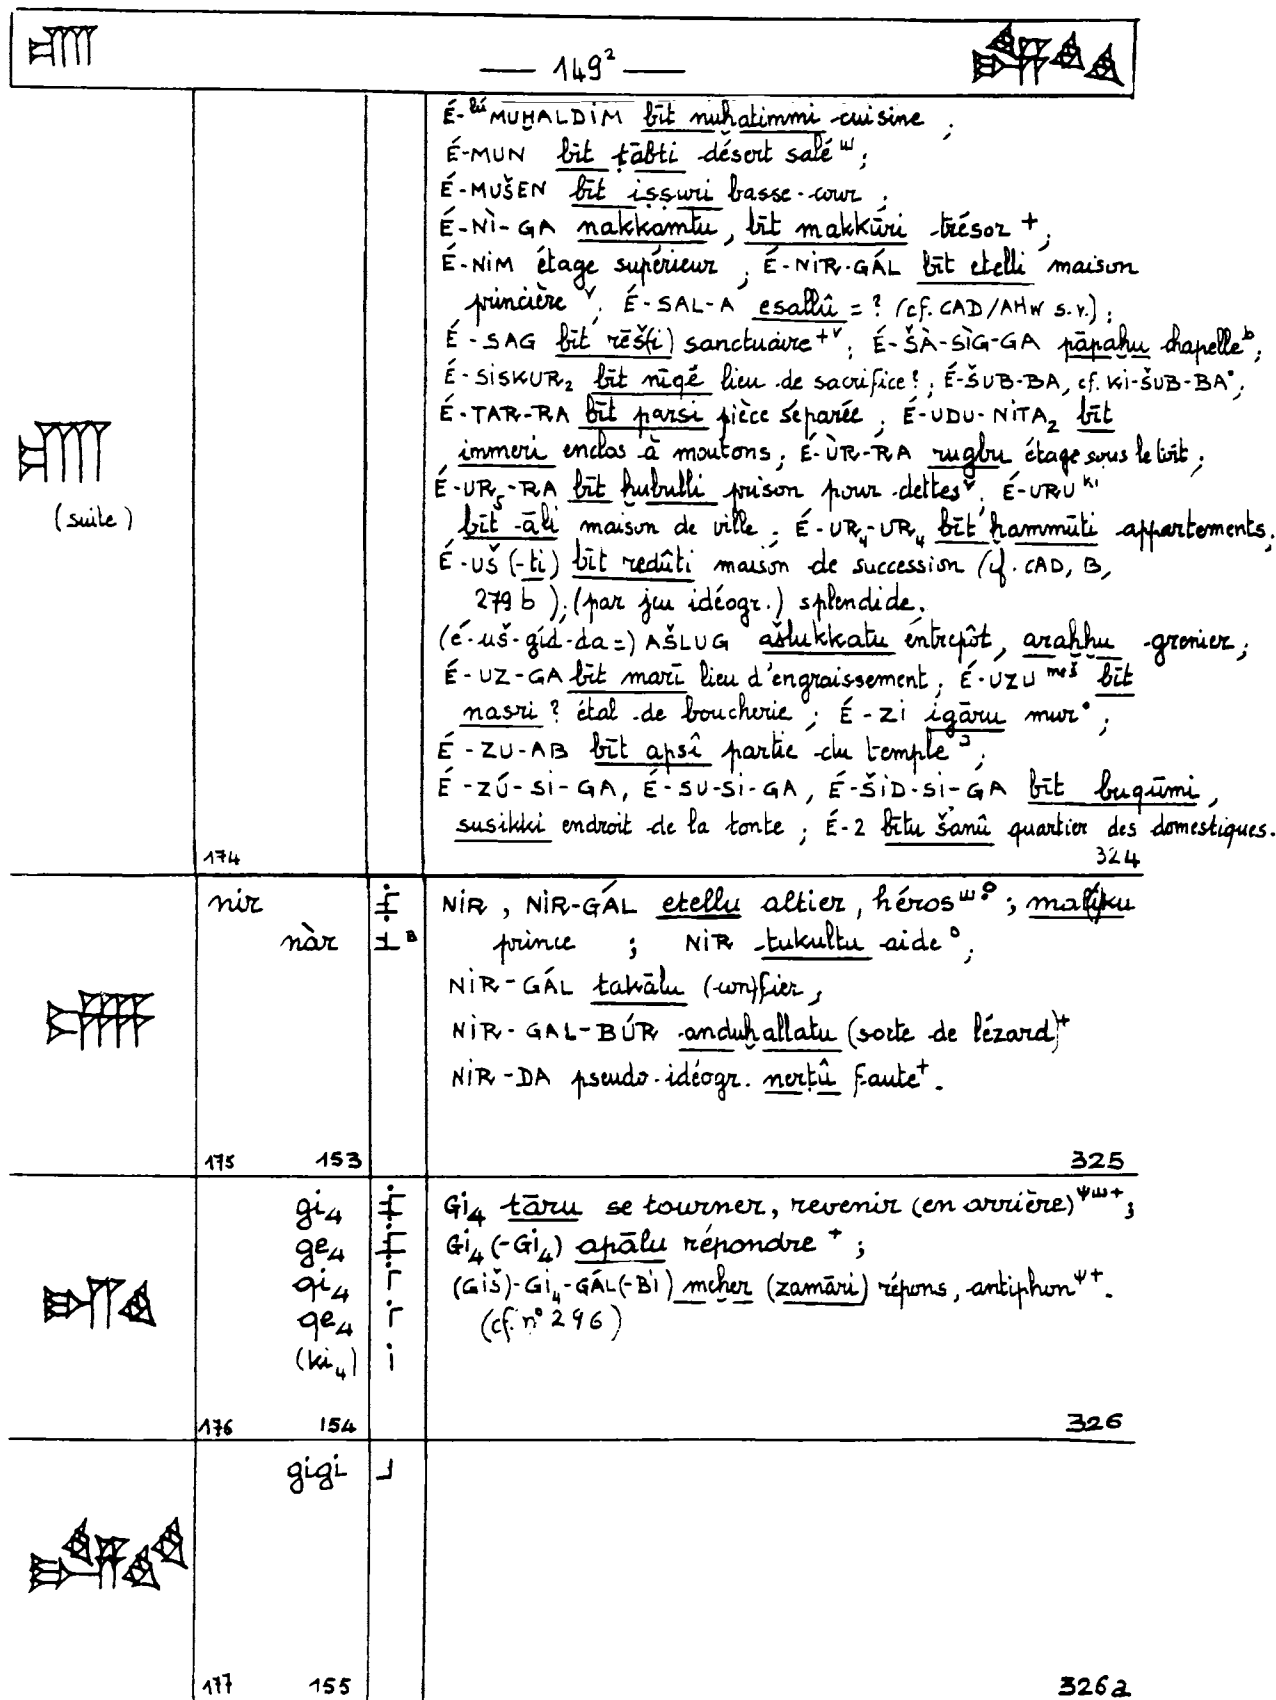 — 149² —
É-ˡᵘ́MUḪALDIM bīt nuḫatimmi cuisine ;
É-MUN bīt ṭābti désert salé ;
É-MUŠEN bīt iṣṣuri basse-cour ;
É-NÌ-GA nakkamtu, bīt makkūri trésor + ;
É-NIM étage supérieur ; É-NIR-GÁL bīt etelli maison
princière ᵛ ; É-SAL-A esallû = ? (cf. CAD/AHW s.v.) ;
É-SAG bīt rēš(ti) sanctuaire ⁺ᵛ ; É-ŠÀ-SÌG-GA pāpaḫu chapelle ᵇ ;
É-SISKUR₂ bīt nīqé lieu de sacrifice ? ; É-ŠUB-BA, cf. KI-ŠUB-BA° ;
É-TAR-RA bīt parsi pièce séparée ; É-UDU-NITA₂ bīt
immeri enclos à moutons ; É-ÙR-RA rugbu étage sous le toit ;
(suite)
É-UR₅-RA bīt ḫubulli prison pour dettes ᵛ ; É-URU ᵏⁱ
bīt āli maison de ville ; É-UR₄-UR₄ bīt ḫammūti appartements ;
É-UŠ (-ti) bīt redûti maison de succession (cf. CAD, B,
279 b) ; (par jeu idéogr.) splendide.
(é-uš-gíd-da =) AŠLUG ašlukkatu entrepôt, araḫḫu grenier ;
É-UZ-GA bīt marī lieu d'engraissement ; É-UZU ᵐᵉˢ̌ bīt
nasri ? étal de boucherie ; É-ZI igāru mur° ;
É-ZU-AB bīt apsî partie du temple ;
É-ZÚ-SI-GA, É-SU-SI-GA, É-ŠID-SI-GA bīt buqūmi,
susikki endroit de la tonte ; É-2 bītu šanû quartier des domestiques.
174 324
nir NIR, NIR-GÁL etellu altier, héros ; malīku
nàr B prince ; NIR tukultu aide° ;
NIR-GÁL takālu (con)fier ;
NIR-GAL-BÚR anduḫallatu (sorte de lézard)⁺
NIR-DA pseudo-idéogr. nerṭû faute⁺.
175 153 325
gi₄ GI₄ tāru se tourner, revenir (en arrière) ᵠᵚ⁺ ;
ge₄ GI₄ (-GI₄) apālu répondre ⁺ ;
qi₄ (GIŠ)-GI₄-GÁL(-BI) meḫer (zamāri) répons, antiphon ᵠ⁺.
qe₄ (cf. n° 296)
(ki₄)
176 154 326
gigi
177 155 326a